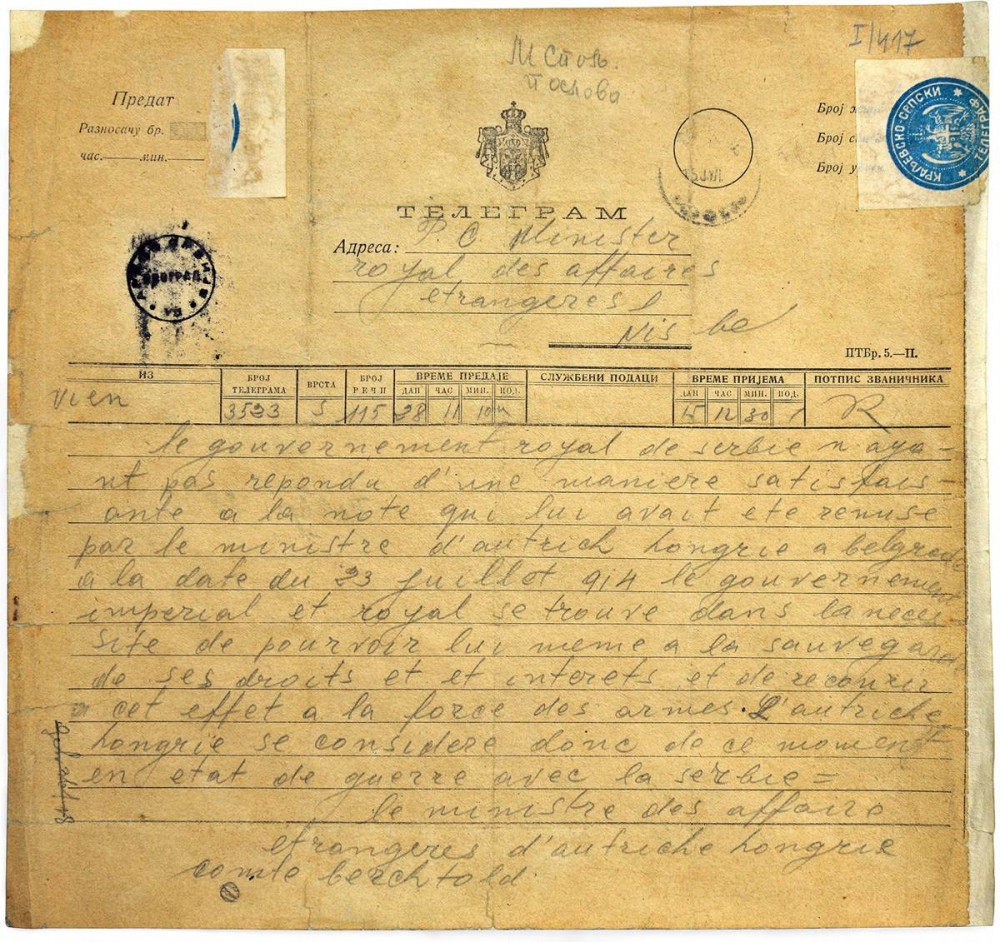 I/417
М Спољ.
послова
Предат
Разносачу бр.
час.— мин.—
Број
Број
Број
КРАЉЕВСКО-СРПСКИ ТЕЛЕГРАФ
ТЕЛЕГРАМ
Адреса: P. C. Minister
royal des affaires
etrangeres
Nis
ПТБр. 5.—II.
ИЗ
БРОЈ ТЕЛЕГРАМА
ВРСТА
БРОЈ РЕЧИ
ВРЕМЕ ПРЕДАЈЕ
ДАН ЧАС МИН. ПОД.
СЛУЖБЕНИ ПОДАЦИ
ВРЕМЕ ПРИЈЕМА
ДАН ЧАС МИН. ПОД.
ПОТПИС ЗВАНИЧНИКА
Vien 3523 S 115 28 11 10 15 12 30 R
le gouvernement royal de serbie n aya-
nt pas repondu d'une maniere satisfais-
ante a la note qui lui avait ete remise
par le ministre d'autrich hongrie a belgrade
a la date du 23 juillot 914 le gouvernement
imperial et royal se trouve dans la neces
site de pourvoir lui meme a la sauvegard
de ses droits et et interets et de recourir
a cet effet a la force des armes. L'autriche
hongrie se considere donc de ce moment
en etat de guerre avec la serbie =
le ministre des affaire
etrangeres d'autriche hongrie
comte berchtold.